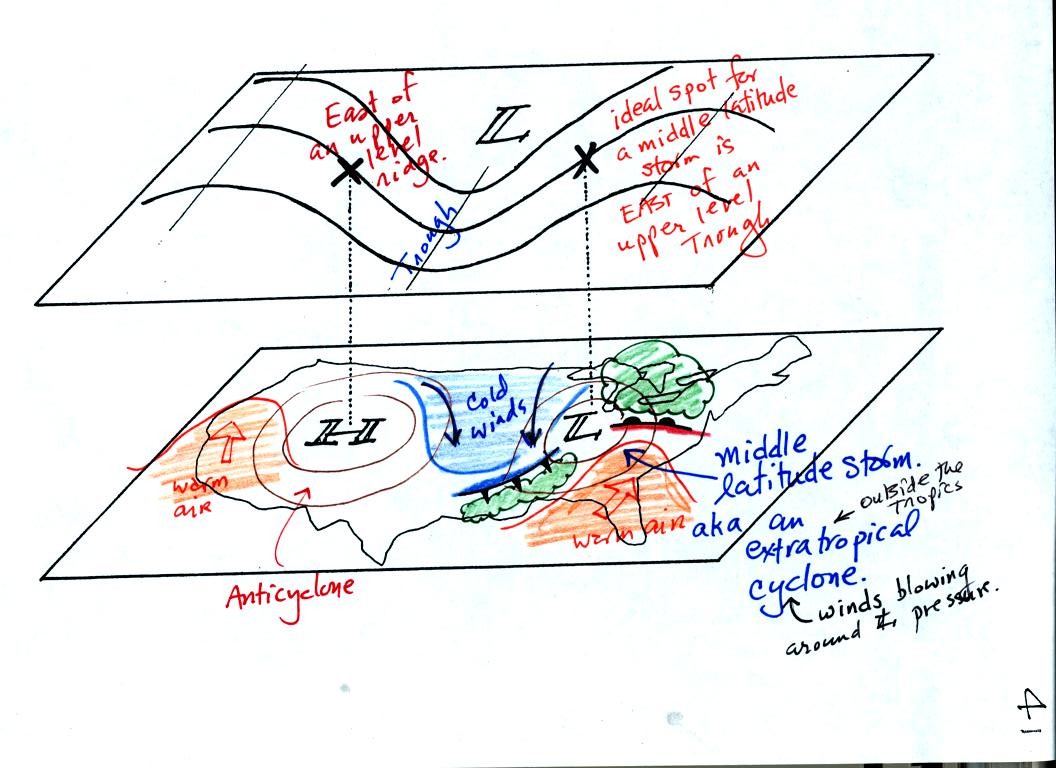 East of
an upper
level
ridge.
L
ideal spot for
a middle latitude
storm is
EAST of an
upper level
Trough
Trough
H
cold
winds
L
warm
air
warm air
Anticyclone
middle
latitude storm.
aka an
extratropical
cyclone.
outside the
tropics
winds blowing
around L pressure.
41